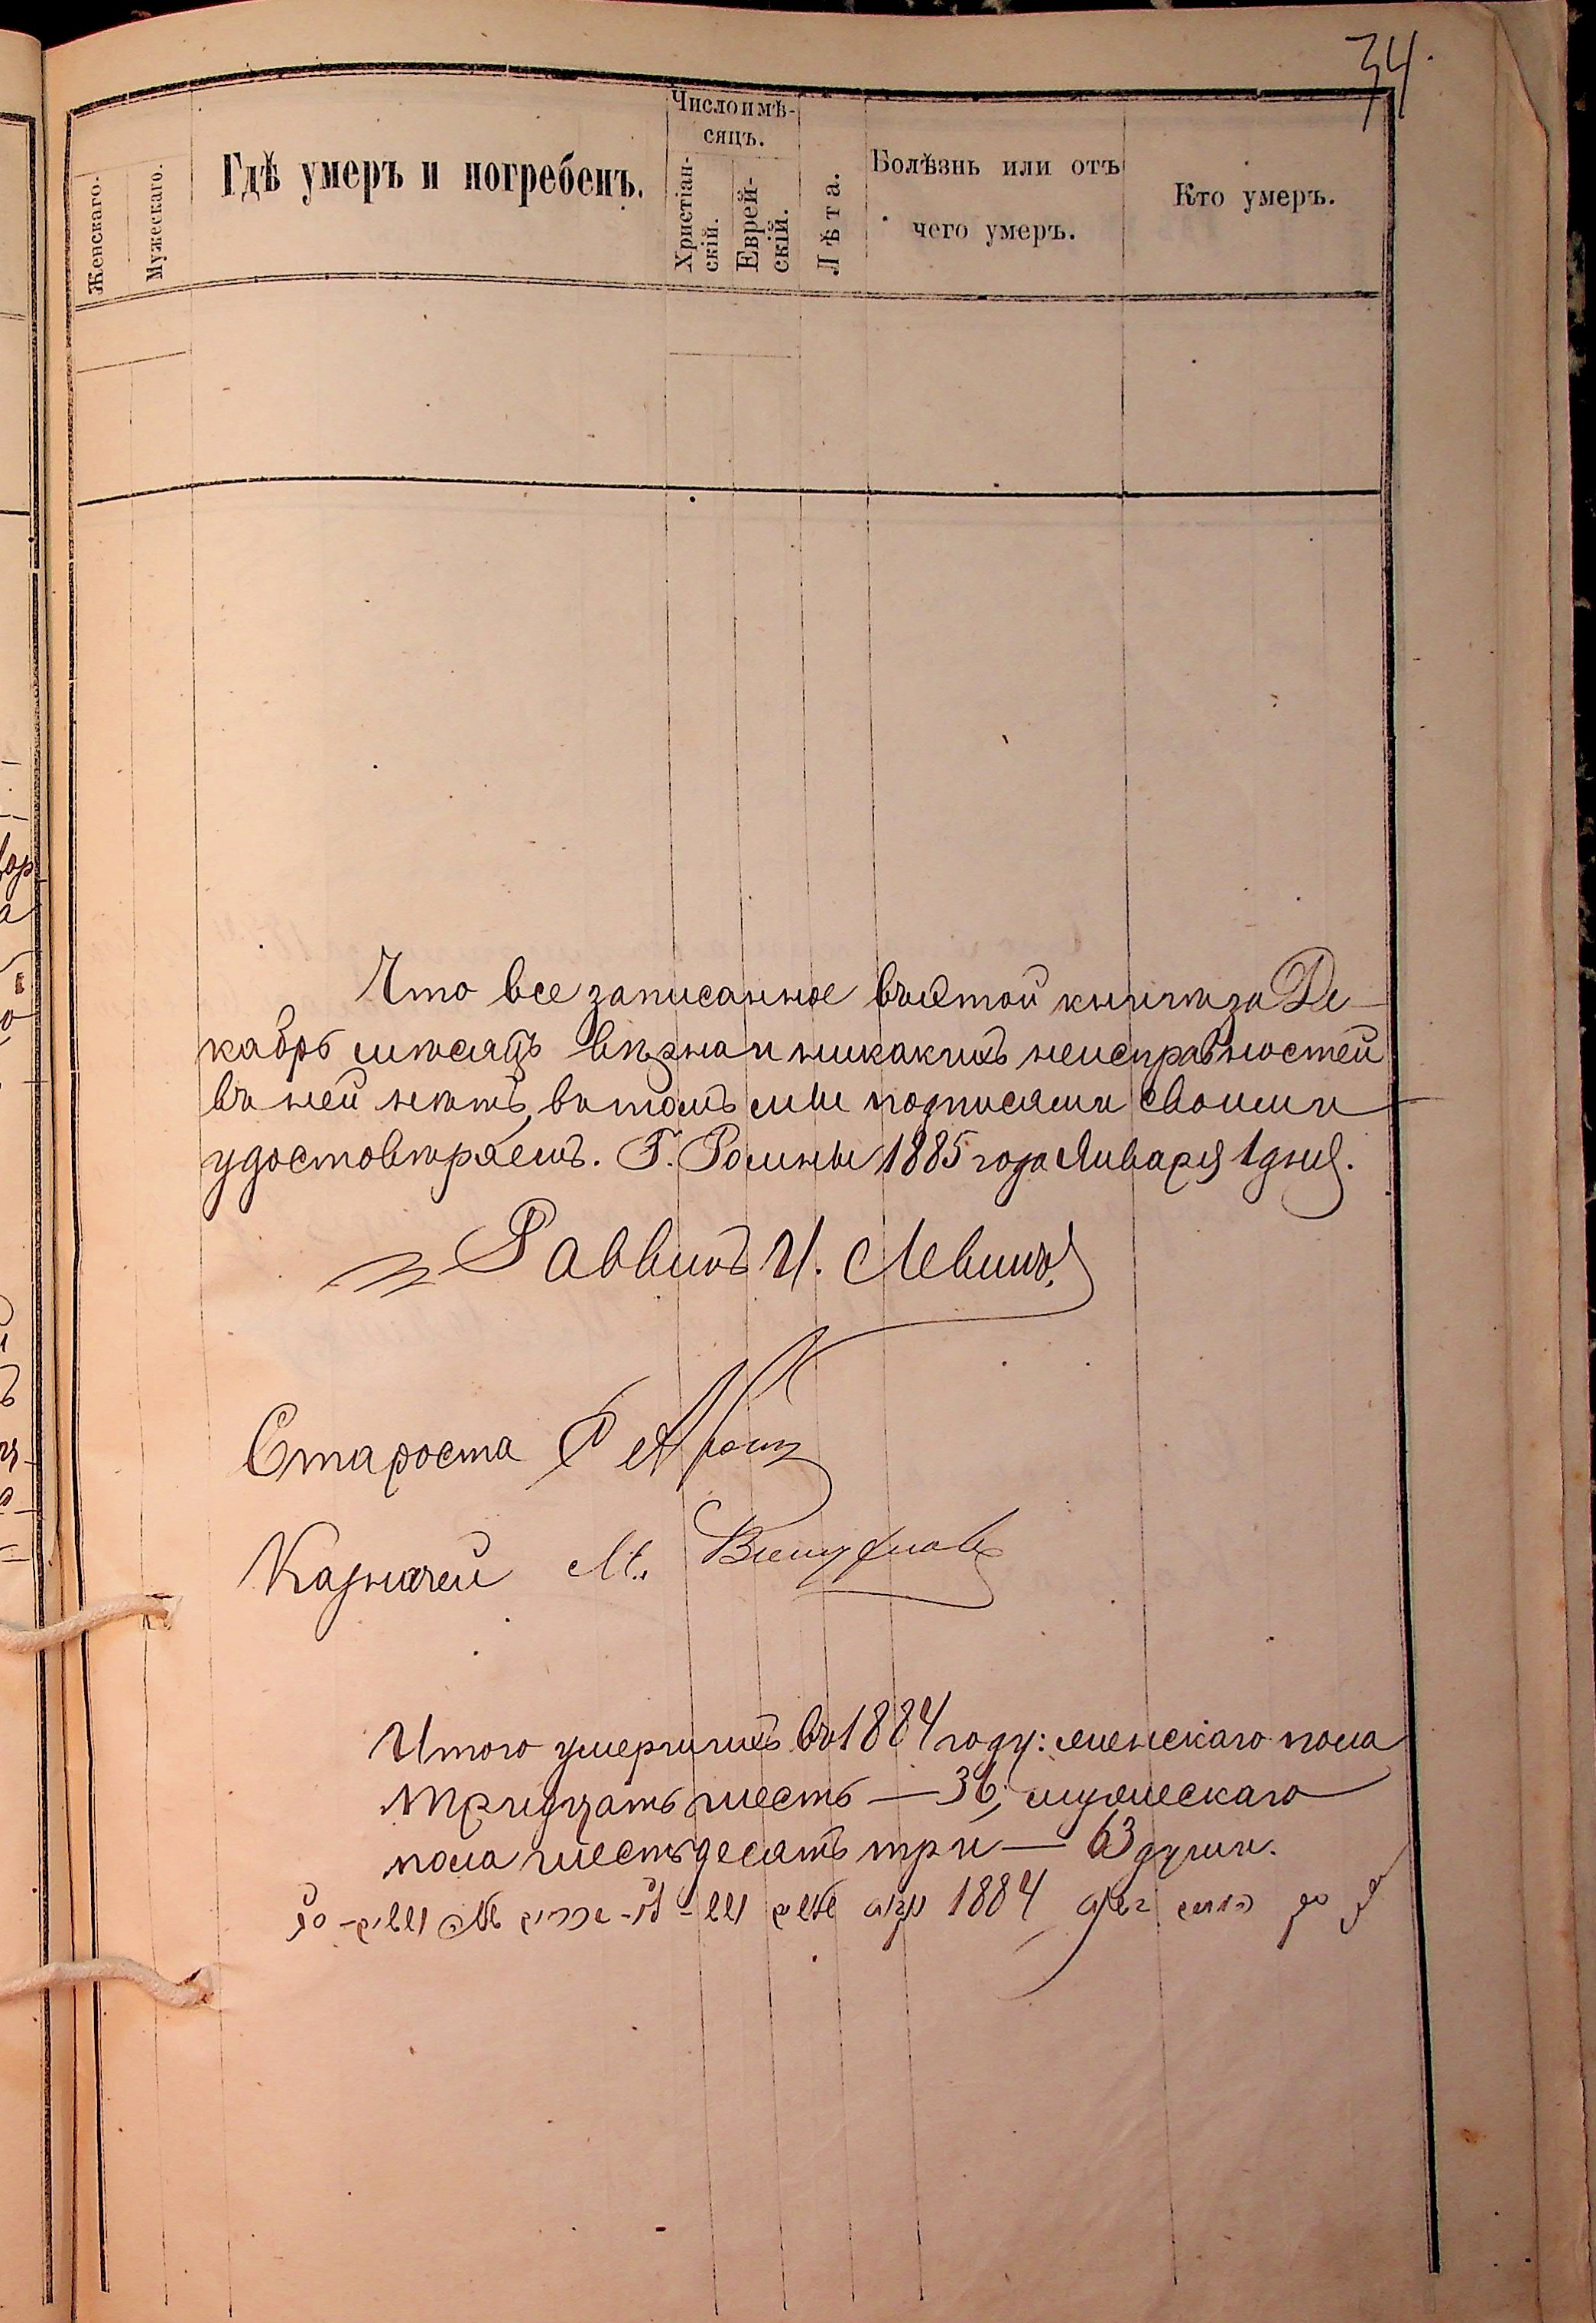 34.
Женскаго.
Мужескаго.
Гдѣ умеръ и погребенъ.
Число и мѣ-
сяцъ.
Христіан-
скій.
Еврей-
скій.
Лѣта.
Болѣзнь или отъ
чего умеръ.
Кто умеръ.
Что все записанное въ этой книгѣ за Де-
кабрь мѣсяцъ вѣрно и никакихъ неисправностей
въ ней нѣтъ, въ томъ мы подписями своими
удостовѣряемъ. Г. Ромны 1885 года Января 1 дня.
Раввинъ И. Левинъ
Староста
Казначей М.
Итого умершихъ въ 1884 году: женскаго пола
тридцать шесть — 36, мужескаго
пола шестьдесятъ три — 63 души.
1884